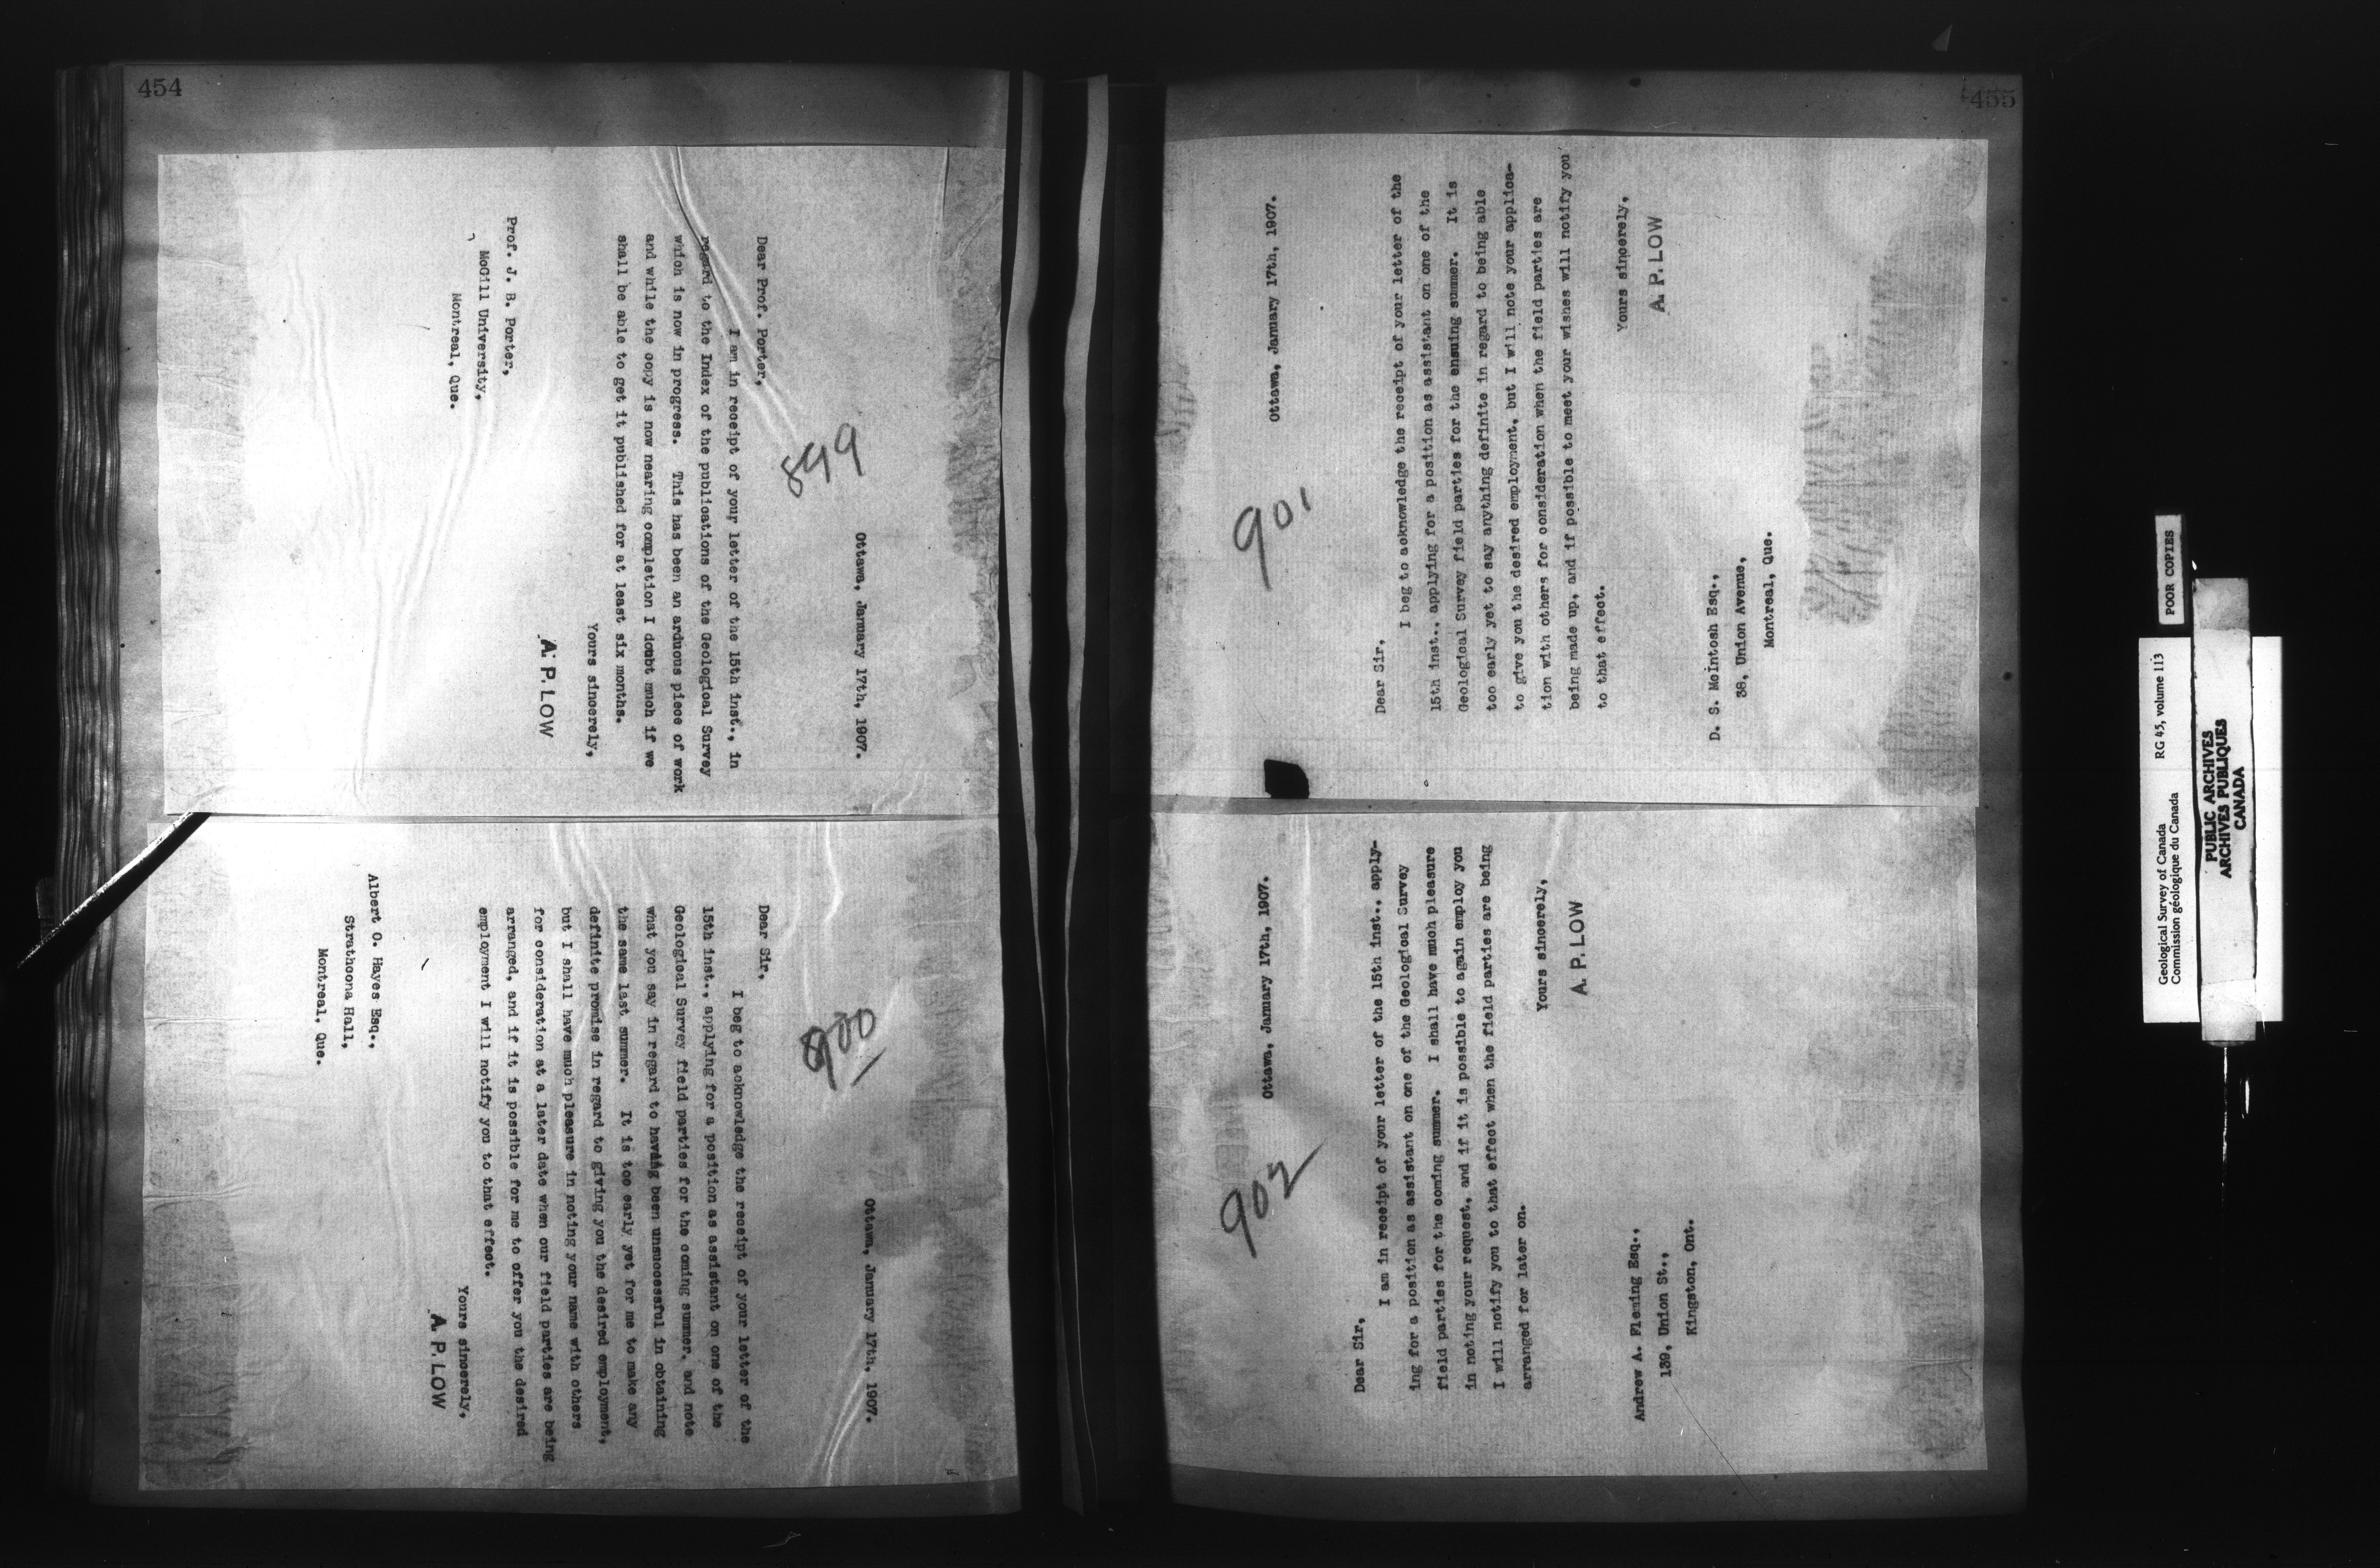 454
899
Ottawa, January 17th, 1907.
Dear Prof. Porter,
I am in receipt of your letter of the 15th inst., in
regard to the Index of the publications of the Geological Survey
which is now in progress. This has been an arduous piece of work
and while the copy is now nearing completion I doubt much if we
shall be able to get it published for at least six months.
Yours sincerely,
A. P. LOW
Prof. J. B. Porter,
McGill University,
Montreal, Que.
900
Ottawa, January 17th, 1907.
Dear Sir,
I beg to acknowledge the receipt of your letter of the
15th inst., applying for a position as assistant on one of the
Geological Survey field parties for the coming summer, and note
what you say in regard to having been unsuccessful in obtaining
the same last summer. It is too early yet for me to make any
definite promise in regard to giving you the desired employment,
but I shall have much pleasure in noting your name with others
for consideration at a later date when our field parties are being
arranged, and if it is possible for me to offer you the desired
employment I will notify you to that effect.
Yours sincerely,
A. P. LOW
Albert O. Hayes Esq.,
Strathcona Hall,
Montreal, Que.
455
901
Ottawa, January 17th, 1907.
Dear Sir,
I beg to acknowledge the receipt of your letter of the
15th inst., applying for a position as assistant on one of the
Geological Survey field parties for the ensuing summer. It is
too early yet to say anything definite in regard to being able
to give you the desired employment, but I will note your applica-
tion with others for consideration when the field parties are
being made up, and if possible to meet your wishes will notify you
to that effect.
Yours sincerely,
A. P. LOW
D. S. McIntosh Esq.,
38, Union Avenue,
Montreal, Que.
902
Ottawa, January 17th, 1907.
Dear Sir,
I am in receipt of your letter of the 15th inst., apply-
ing for a position as assistant on one of the Geological Survey
field parties for the coming summer. I shall have much pleasure
in noting your request, and if it is possible to again employ you
I will notify you to that effect when the field parties are being
arranged for later on.
Yours sincerely,
A. P. LOW
Andrew A. Fleming Esq.,
139, Union St.,
Kingston, Ont.
POOR COPIES
Geological Survey of Canada RG 45, volume 113
Commission géologique du Canada
PUBLIC ARCHIVES
ARCHIVES PUBLIQUES
CANADA